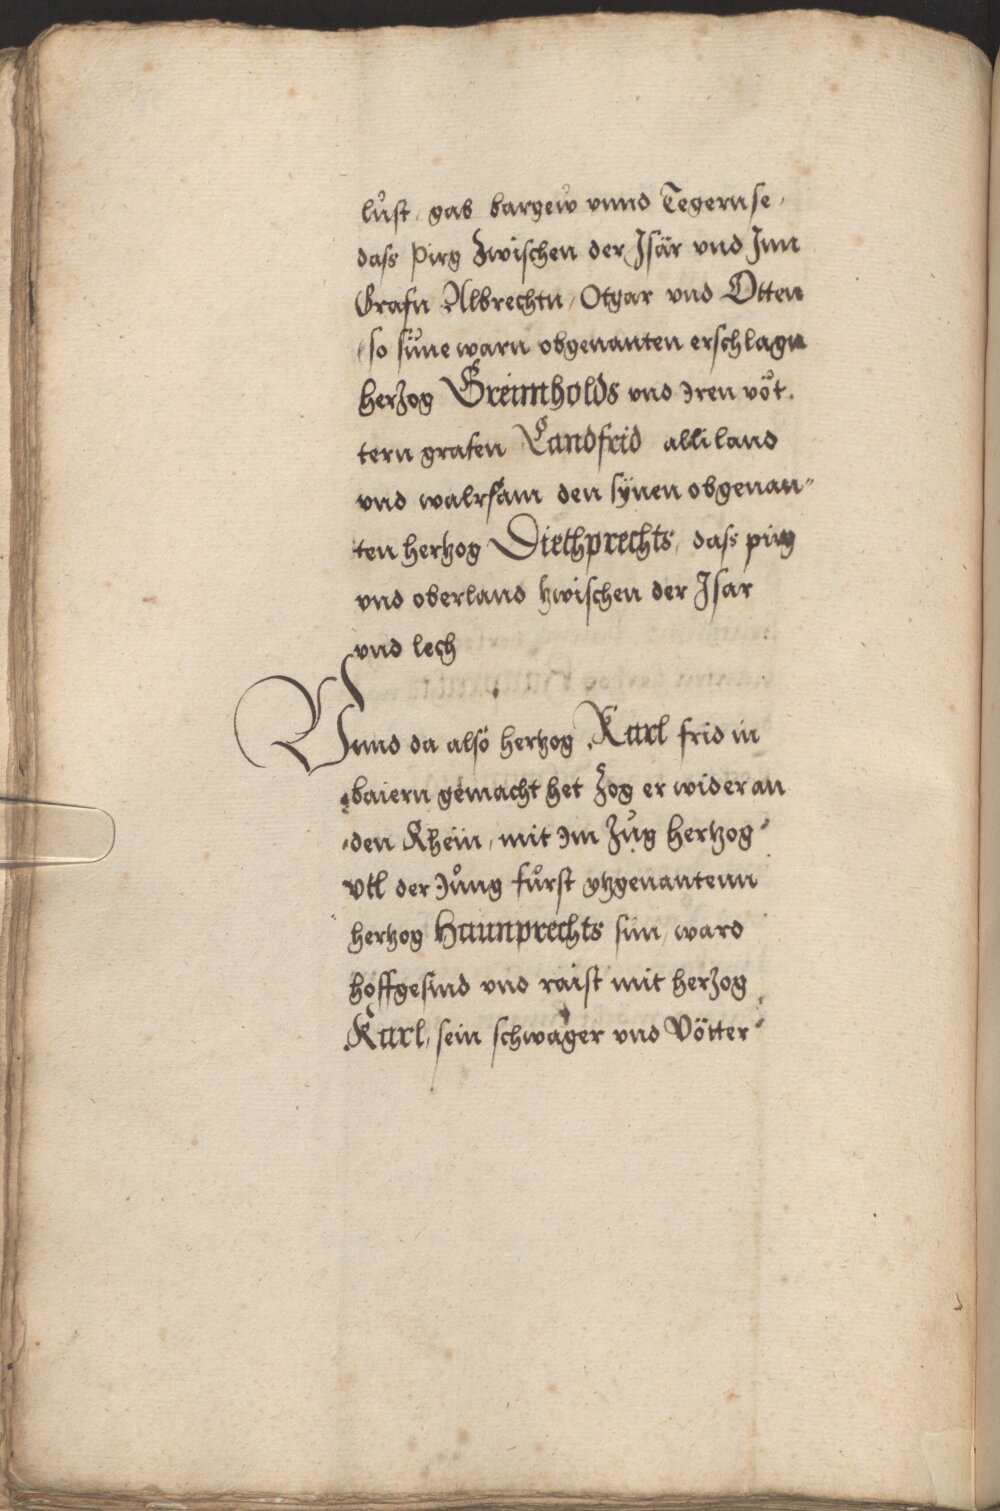 lůst, gab bargew vnnd Tegernse,
dass Pirg Zwischen der Isär vnd Inn
Grafn Albrechtn, Otgar vnd Otten
so sůne warn obgenanten erschlagn
herzog Greimholds vnd Iren vöt.
tern grafen Landfrid alliland
vnd walrham den synen obgenan=
ten hertzog Diethprechts, dass pirg
vnd oberland zwischen der Isar
vnd lech
Vnnd da also hertzog Karl frid in
baiern gemacht het Zog er wider an
den Rhein, mit Im Zůg hertzog
Vtl der Jůng fůrst ytzgenantenn
hertzog Haunprechts sun, ward
hoffgesind vnd raist mit herzog
Karl, sein schwager vnd Vötter